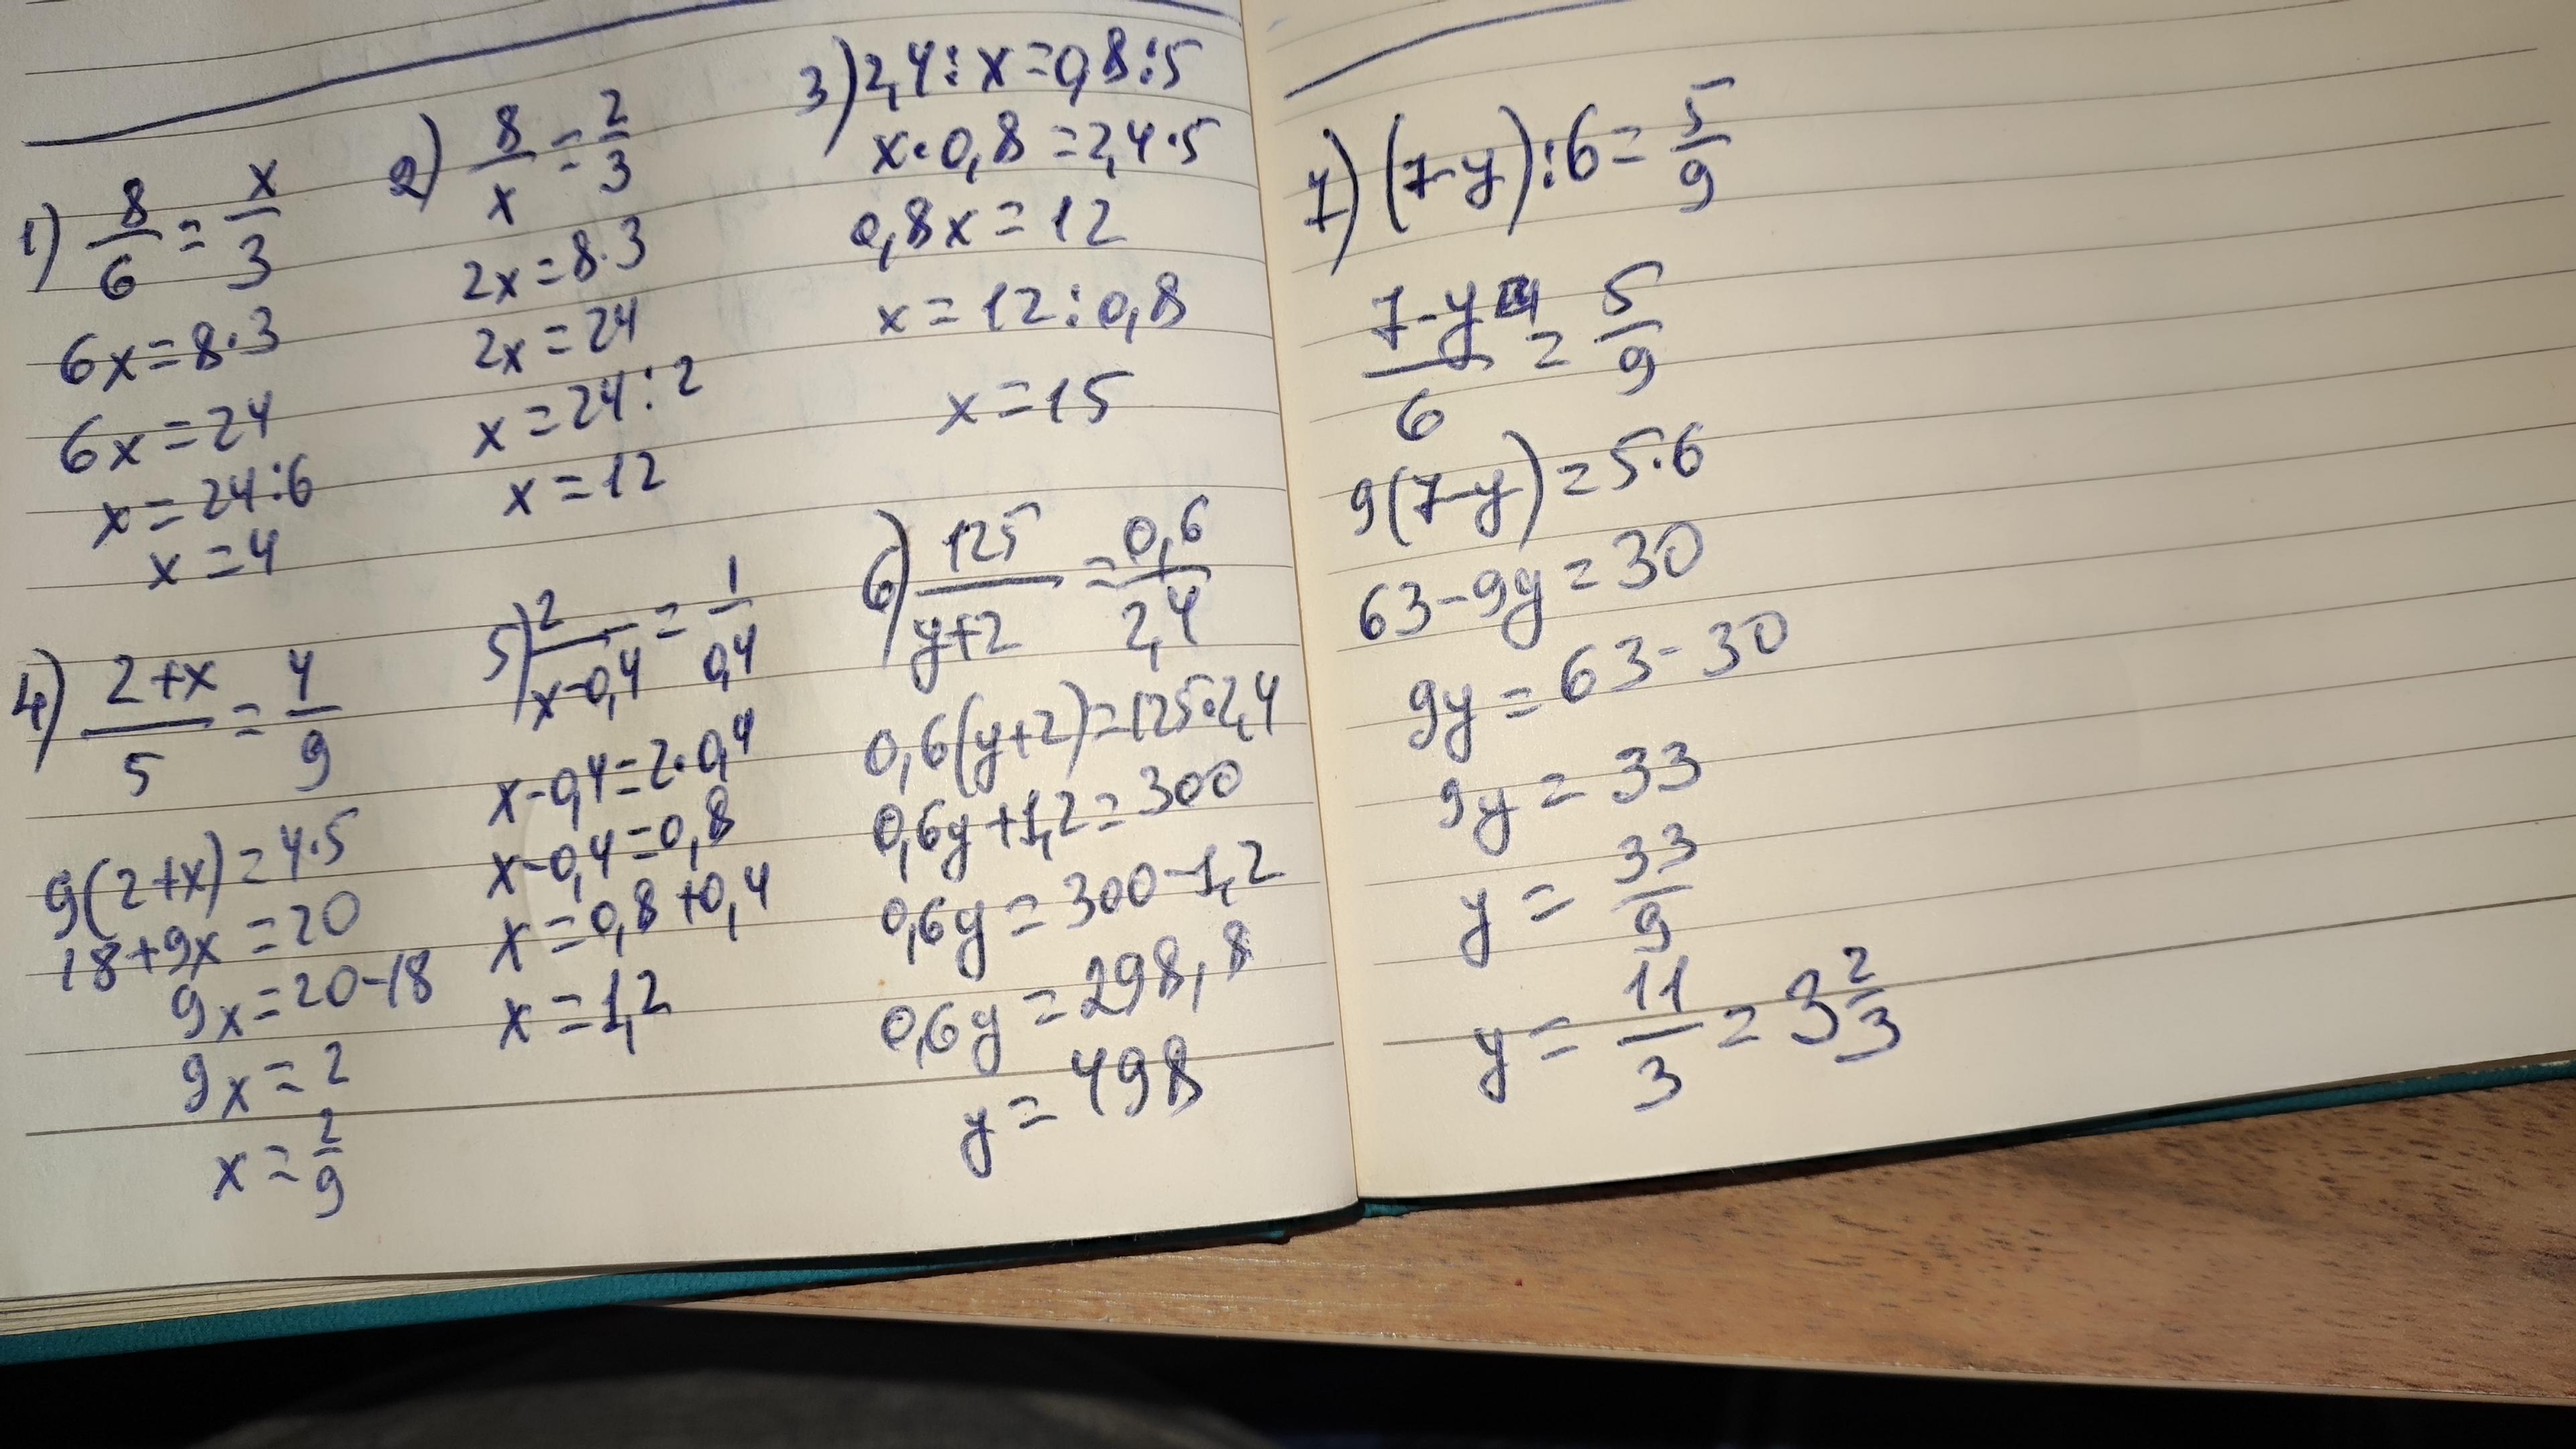 1) 8/6 = x/3
6x=8·3
6x=24
x=24:6
x=4
2) 8/x = 2/3
2x=8·3
2x=24
x=24:2
x=12
3) 2,4:x=0,8:5
x·0,8=2,4·5
0,8x=12
x=12:0,8
x=15
4) (2+x)/5 = 4/9
9(2+x)=4·5
18+9x=20
9x=20-18
9x=2
x=2/9
5) 2/(x-0,4) = 1/0,4
x-0,4=2·0,4
x-0,4=0,8
x=0,8+0,4
x=1,2
6) 125/(y+2) = 0,6/2,4
0,6(y+2)=125·2,4
0,6y+1,2=300
0,6y=300-1,2
0,6y=298,8
y=498
7) (7-y):6=5/9
(7-y)/6 = 5/9
9(7-y)=5·6
63-9y=30
9y=63-30
9y=33
y=33/9
y=11/3=3 2/3